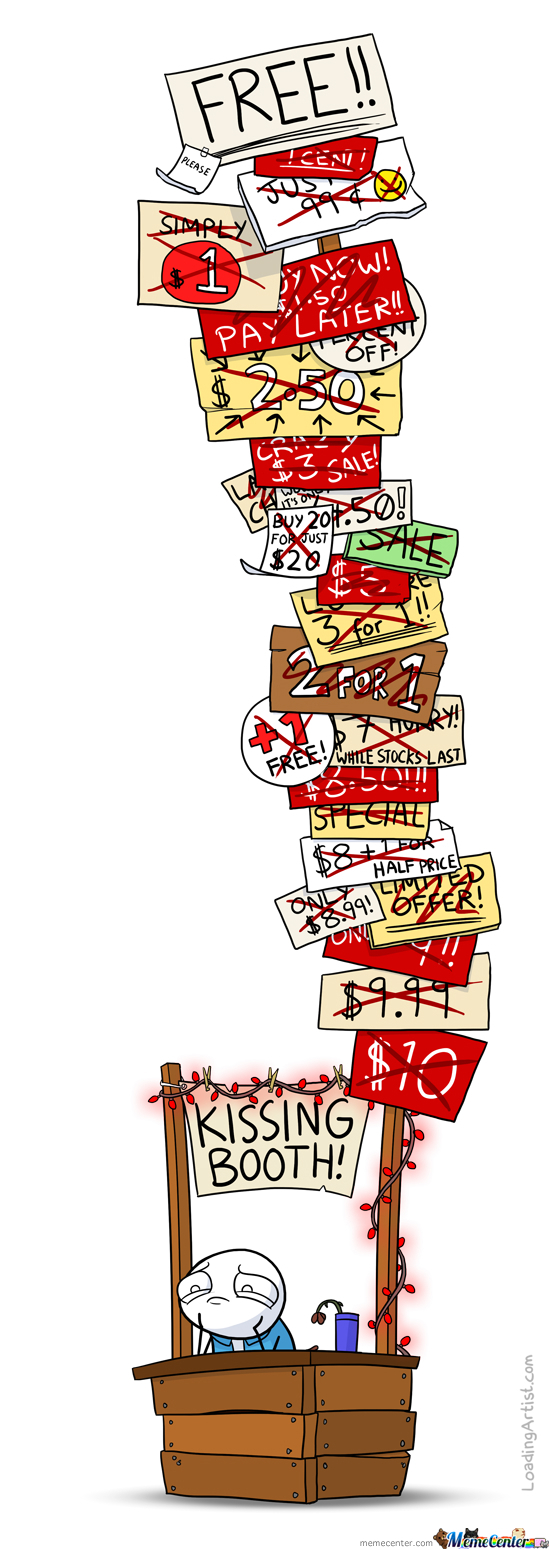 FREE!!
PLEASE
1 CENT!
JUST
99¢
SIMPLY
$1
BUY NOW!
$1.50
PAY LATER!!
PERCENT
OFF!
$2.50
CRAZY
$3 SALE!
IT'S ONLY
.50!
BUY 20
FOR JUST
$20
SALE
$5
3 for 1!!
2 FOR 1
+1
FREE!
$7 HURRY!
WHILE STOCKS LAST
$8.50!!!
SPECIAL
$8 + 1 FOR
HALF PRICE
LIMITED
OFFER!
ONLY
$8.99!
9!!
$9.99
$10
KISSING
BOOTH!
LoadingArtist.com
memecenter.com MemeCenter